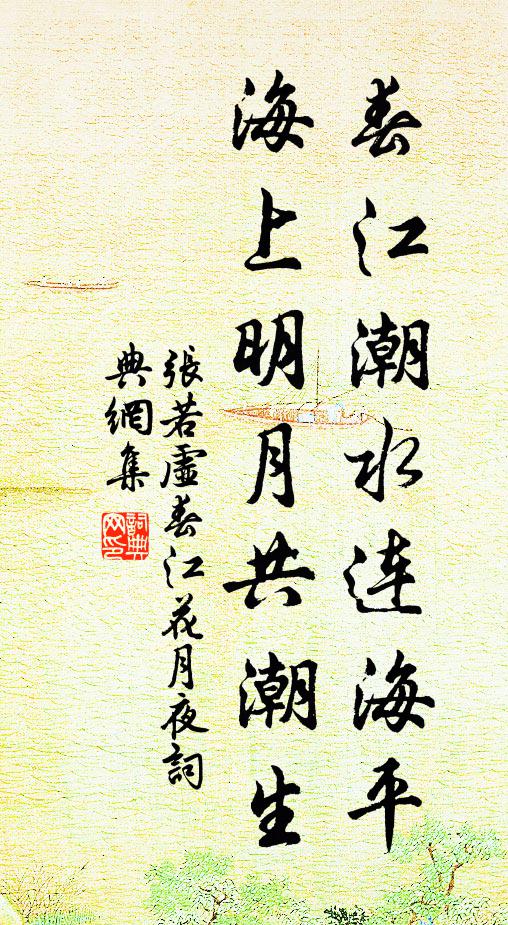 春江潮水连海平
海上明月共潮生
張若虛春江花月夜詞
典網集
詞典网印